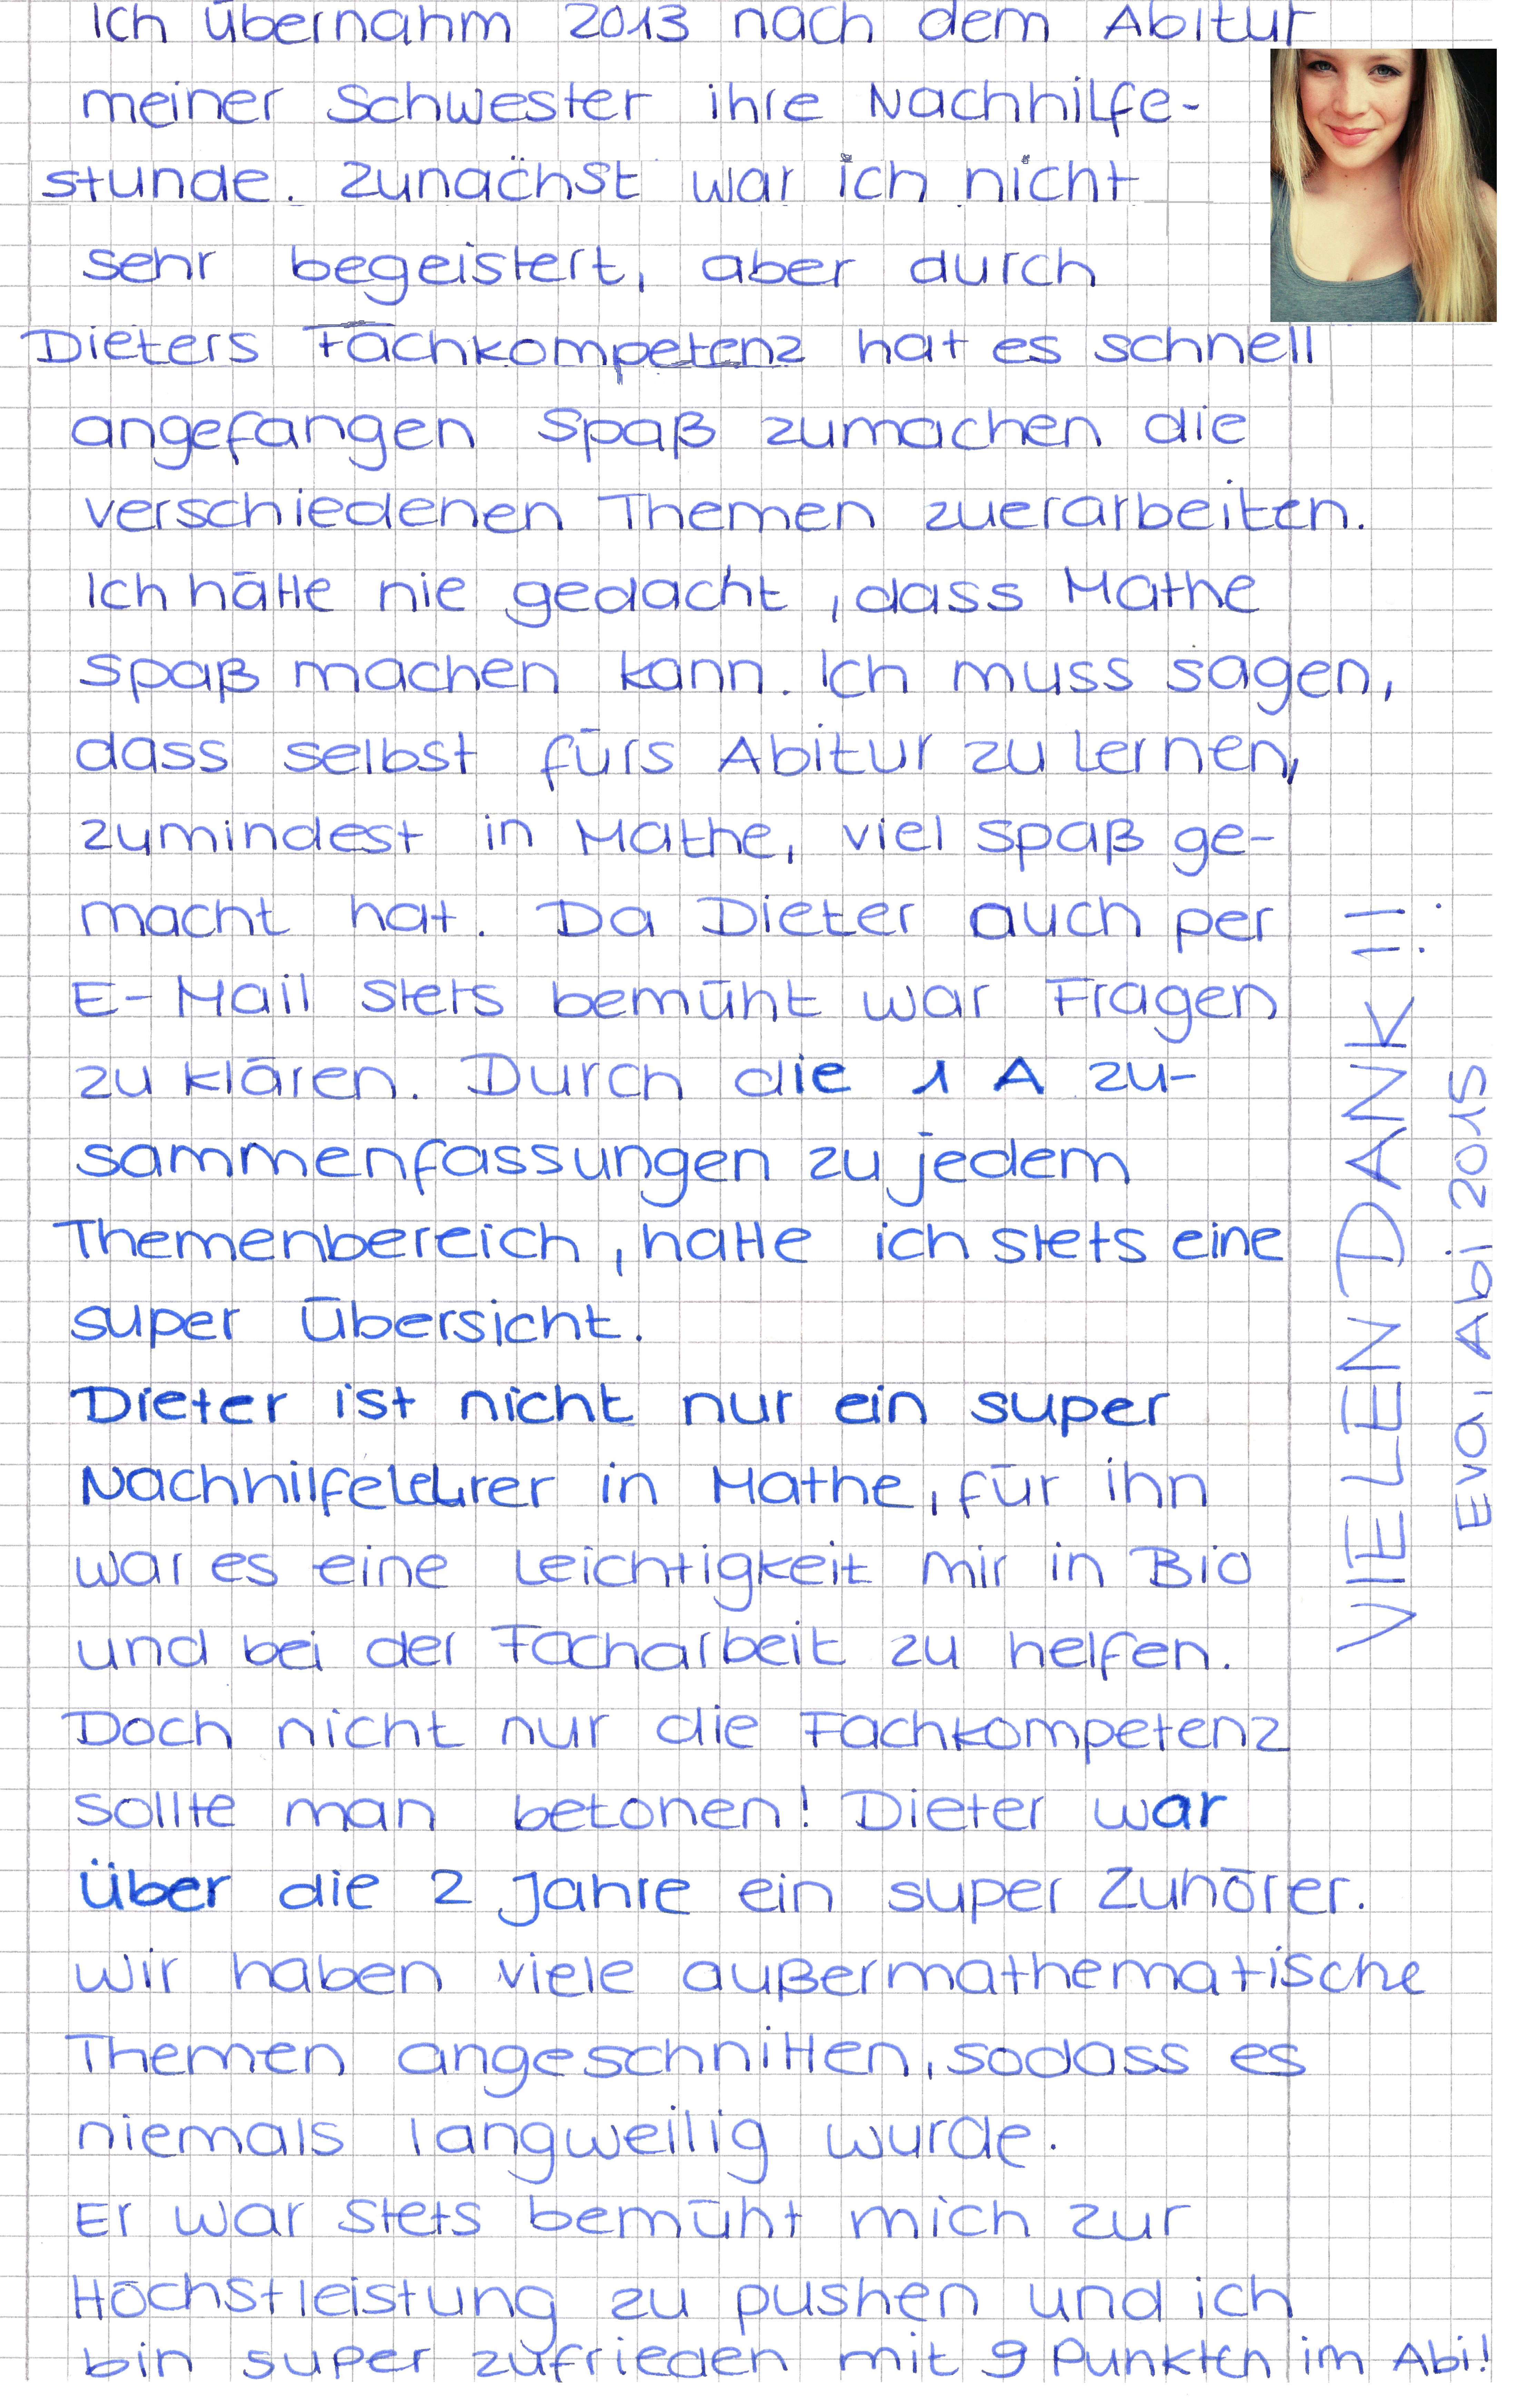 Ich übernahm 2013 nach dem Abitur
meiner Schwester ihre Nachhilfe-
stunde. Zunächst war ich nicht
sehr begeistert, aber durch
Dieters Fachkompetenz hat es schnell
angefangen Spaß zumachen die
verschiedenen Themen zuerarbeiten.
Ich hätte nie gedacht, dass Mathe
Spaß machen kann. Ich muss sagen,
dass selbst fürs Abitur zu lernen,
zumindest in Mathe, viel Spaß ge-
macht hat. Da Dieter auch per
E-Mail stets bemüht war Fragen
zu klären. Durch die 1 A zu-
sammenfassungen zu jedem
Themenbereich, hatte ich stets eine
super Übersicht.
Dieter ist nicht nur ein super
Nachhilfelehrer in Mathe, für ihn
war es eine Leichtigkeit mir in Bio
und bei der Facharbeit zu helfen.
Doch nicht nur die Fachkompetenz
sollte man betonen! Dieter war
über die 2 Jahre ein super Zuhörer.
Wir haben viele außermathematische
Themen angeschnitten, sodass es
niemals langweilig wurde.
Er war stets bemüht mich zur
Höchstleistung zu pushen und ich
bin super zufrieden mit 9 Punkten im Abi!
VIELEN DANK!!
Eva, Abi 2015